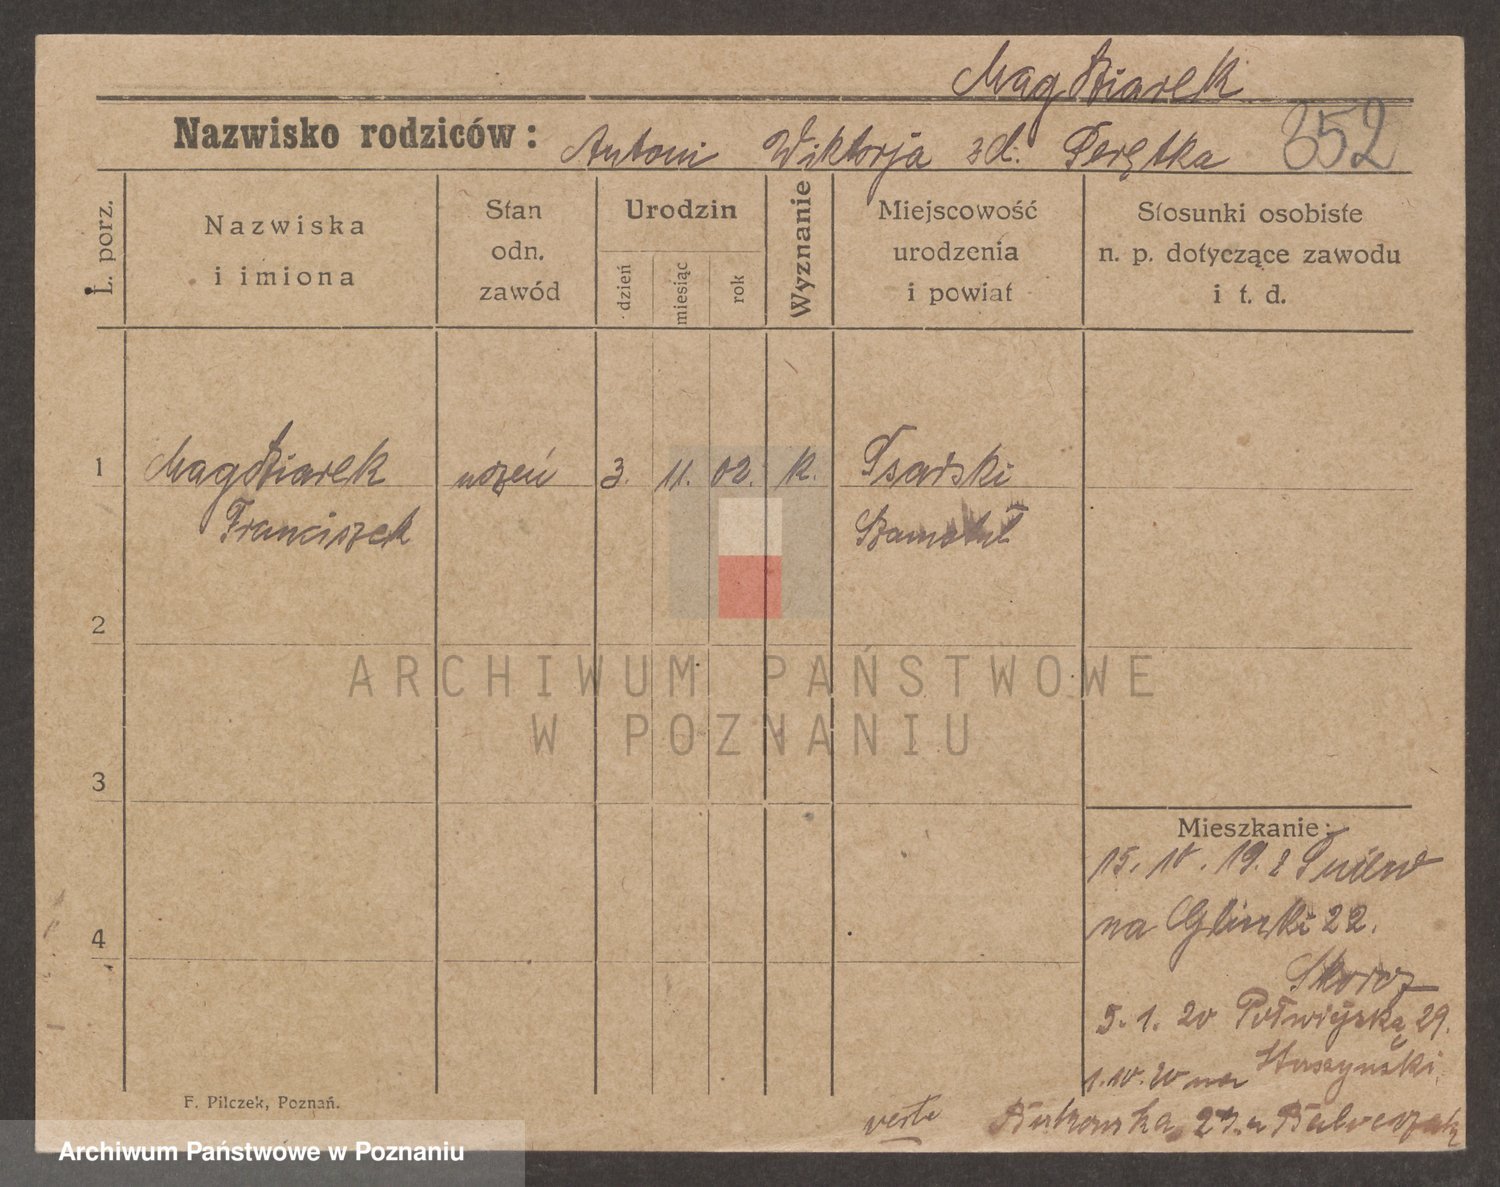 Magdziarek
Nazwisko rodziców: Antoni Wiktorja zd. Perętka 352
L. porz.
Nazwiska
i imiona
Stan
odn.
zawód
Urodzin
dzień
miesiąc
rok
Wyznanie
Miejscowość
urodzenia
i powiat
Stosunki osobiste
n. p. dotyczące zawodu
i t. d.
1 Magdziarek uczeń 3. 11. 02. k. Psarski
Franciszek Szamotuł
2
3
4
Mieszkanie:
15. 10. 19. z Pniew
na Glinki 22.
Skorcz
5. 1. 20 Półwiejską 29.
1. 10. 20 na
Bukowska
verte
F. Pilczek, Poznań.
ARCHIWUM PAŃSTWOWE
W POZNANIU
Archiwum Państwowe w Poznaniu